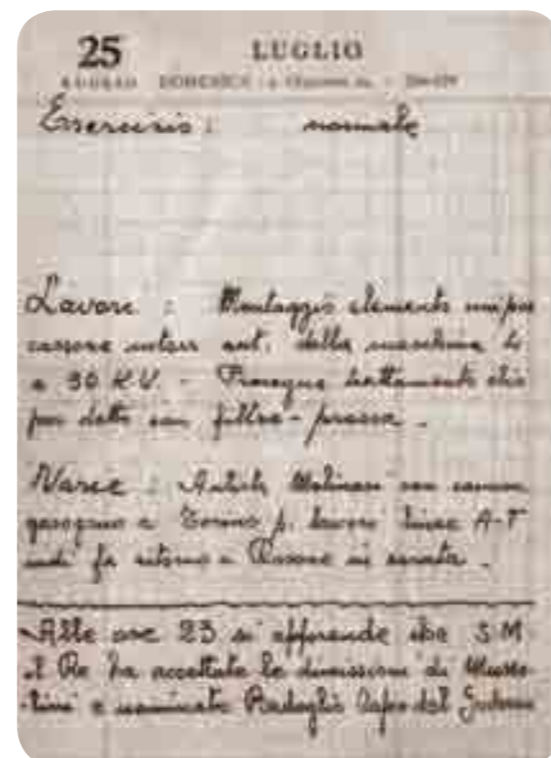 25 LUGLIO
DOMENICA
Esercizio : normale
Lavori : Montaggio elemento
cassone ant. della macchina
a 30 K.V. - Prosegue trattamento
per detto con filtro-pressa .
Varie : Autista Molinari con
gasogeno a Torino p. lavori linee A-T
indi fa ritorno a Rosone in serata .
Alle ore 23 si apprende che S.M
il Re ha accettate le dimissioni di Musso-
-lini e nominato Badoglio Capo del Governo